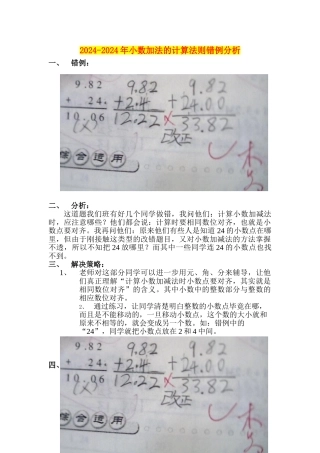 2024-2024年小数加法的计算法则错例分析
一、 错例：
9.82 9.82 9.82
+ 24. +2.4 +24.00
10.06 12.22 × 33.82
(×) 改正
综合运用
二、 分析：
这道题我们班有好几个同学做错，我问他们：计算小数加减法
时，应注意哪些？他们都会说：计算时要相同数位对齐，也就是小
数点要对齐。我再问他们：原来他们有些人是知道24的小数点在哪
里，但由于刚接触这类型的改错题目，又对小数加减法的方法掌握
不透，所以不知把24放哪里？而其中一些同学连24的小数点也找
不到。
三、 解决策略：
1、 老师对这部分同学可以进一步用元、角、分来辅导，让他
们真正理解“计算小数加减法时小数点要对齐，其实就是
相同数位对齐”的含义。其中小数中的整数部分与整数的
相应数位对齐。
2. 通过练习，让同学清楚明白整数的小数点毕竟在哪，
而且是不能移动的。一旦移动小数点，这个数的大小就和
原来不相等的，就会变成另一个数。如：错例中的
“24”，同学就把小数点放在2和4中间。
四、
9.82 9.82 9.82
+ 24. +2.4 +24.00
10.06 12.22 × 33.82
(×) 改正
综合运用